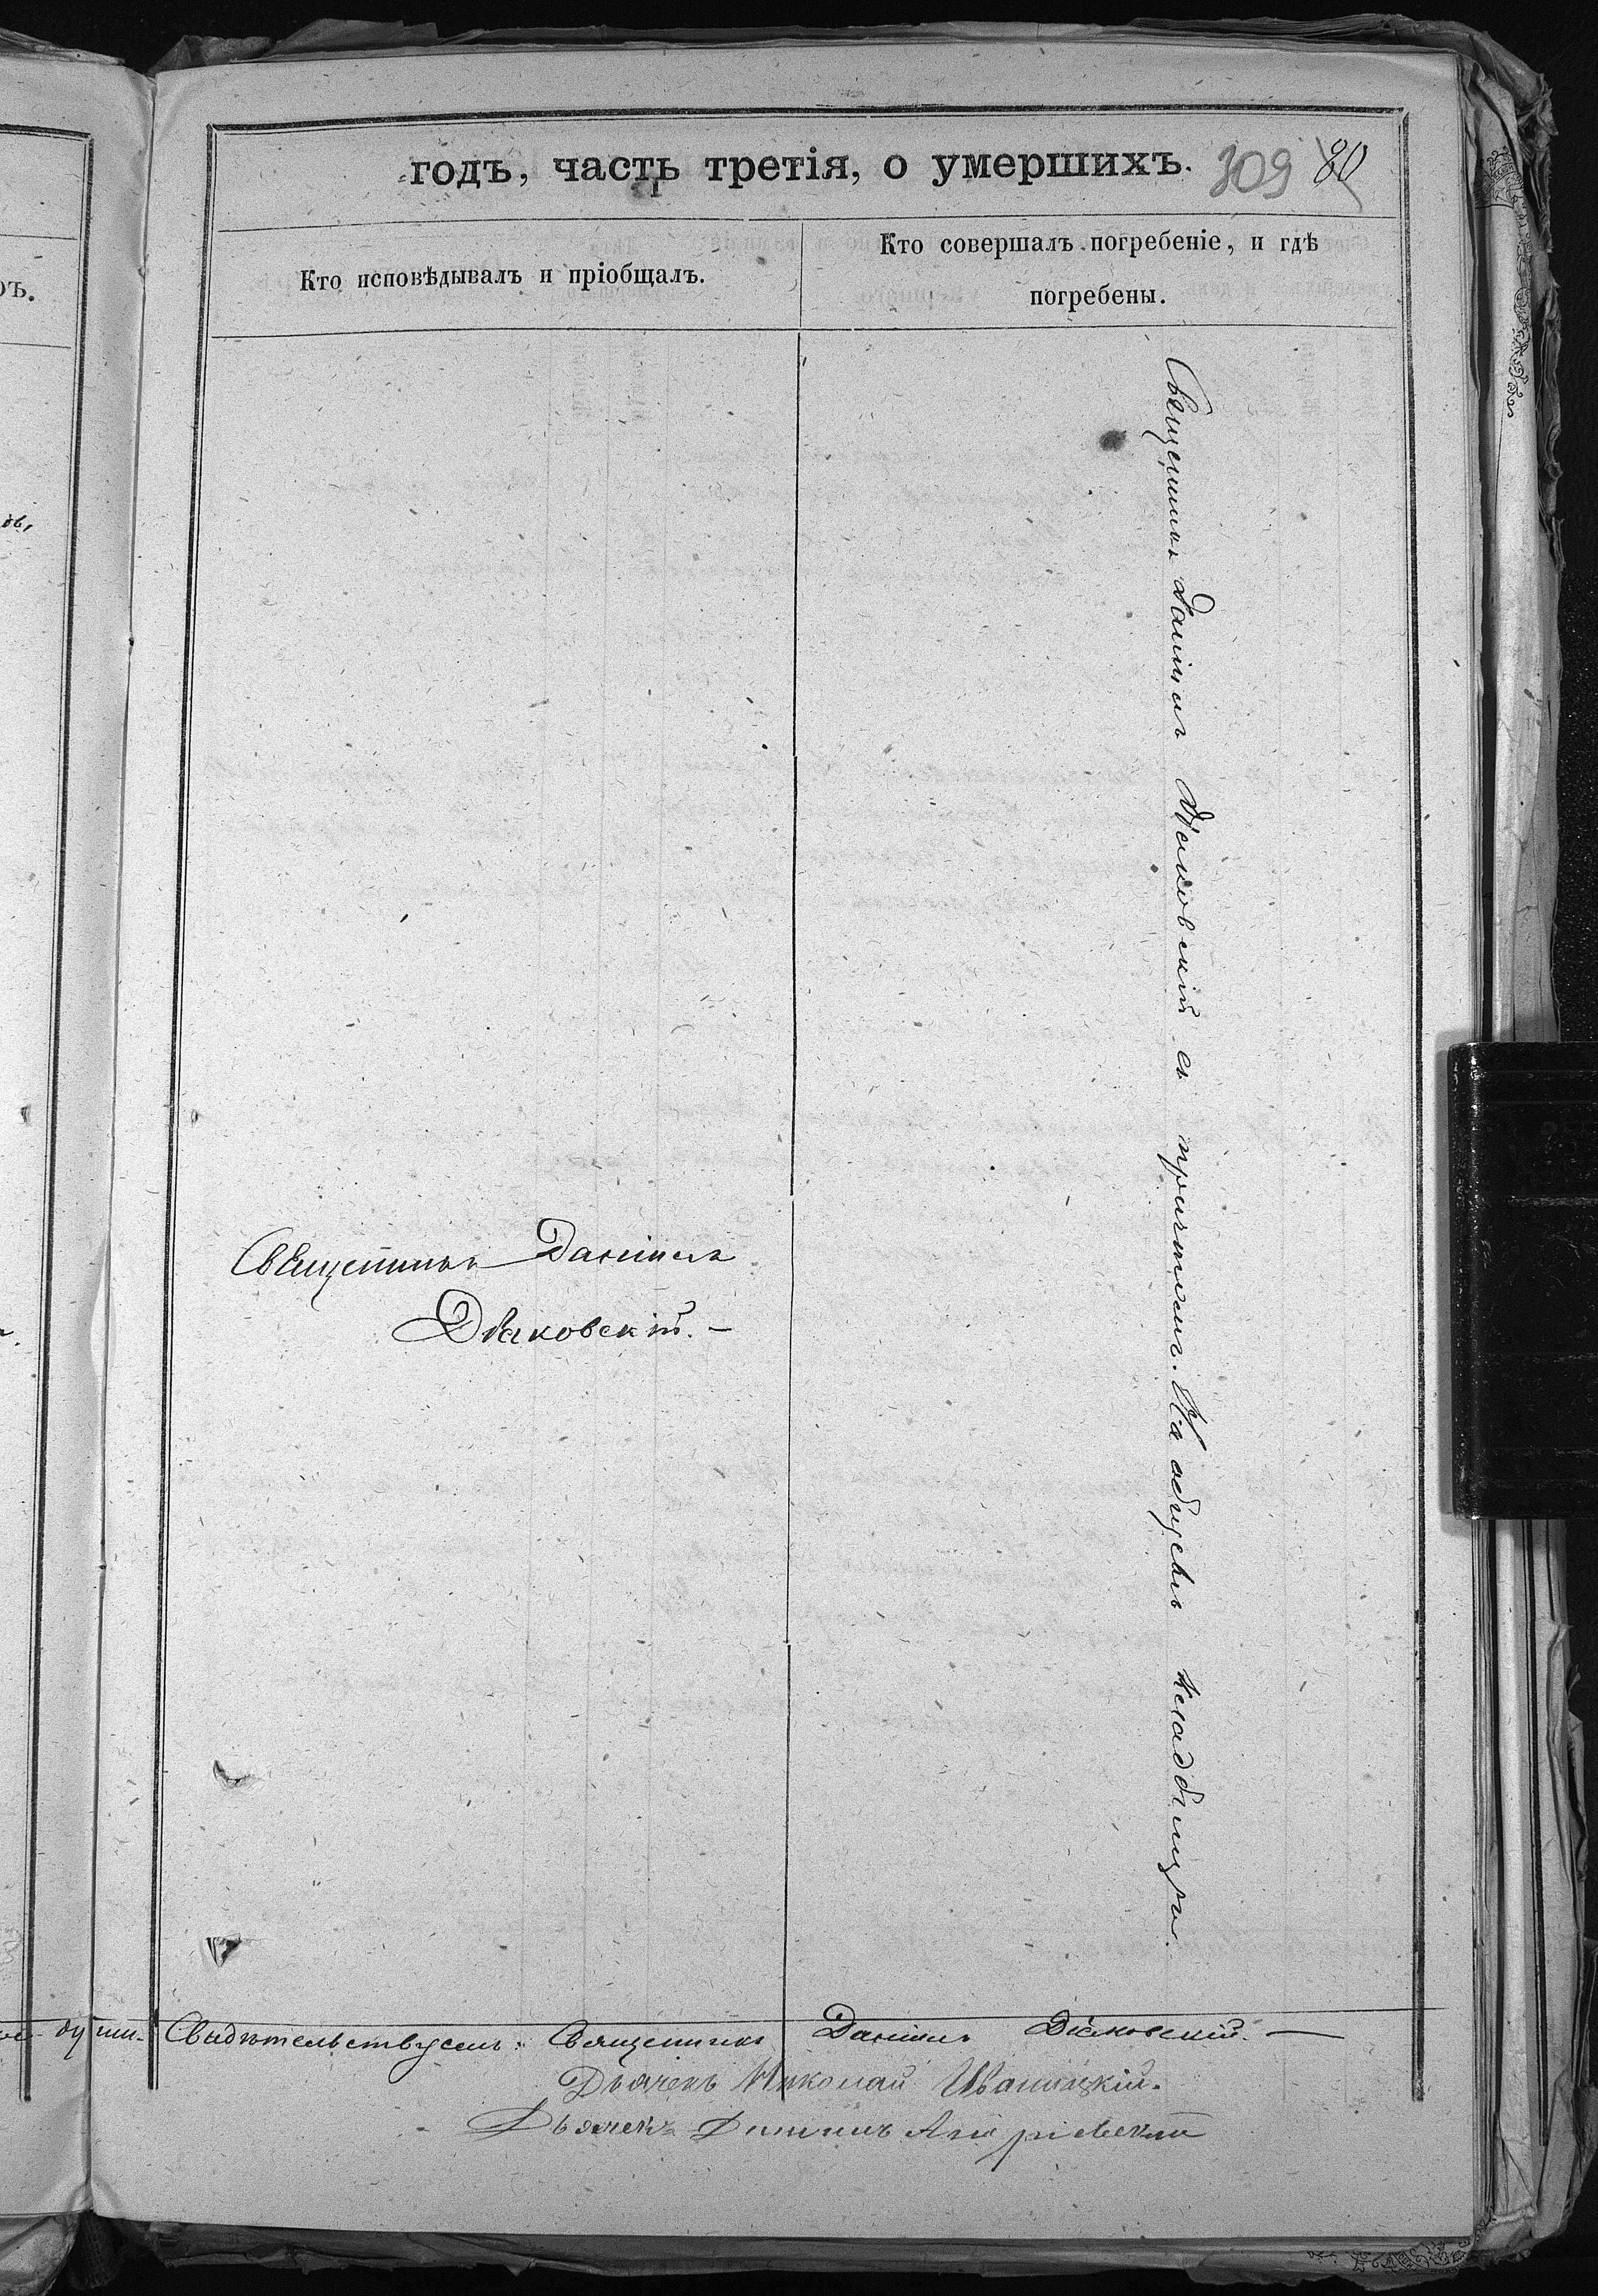 годъ, часть третія, о умершихъ. 309 80
Кто исповѣдывалъ и пріобщалъ.
Кто совершалъ погребеніе, и гдѣ
погребены.
Священникъ Даніилъ Дьяковскій съ причтомъ. На общемъ кладбищѣ.
Священникъ Даніилъ
Дьяковскій. —
Свидѣтельствуемъ: Священникъ Даніилъ Дьяковскій. —
Дьячекъ Николай Иваницкій.
Дьячекъ